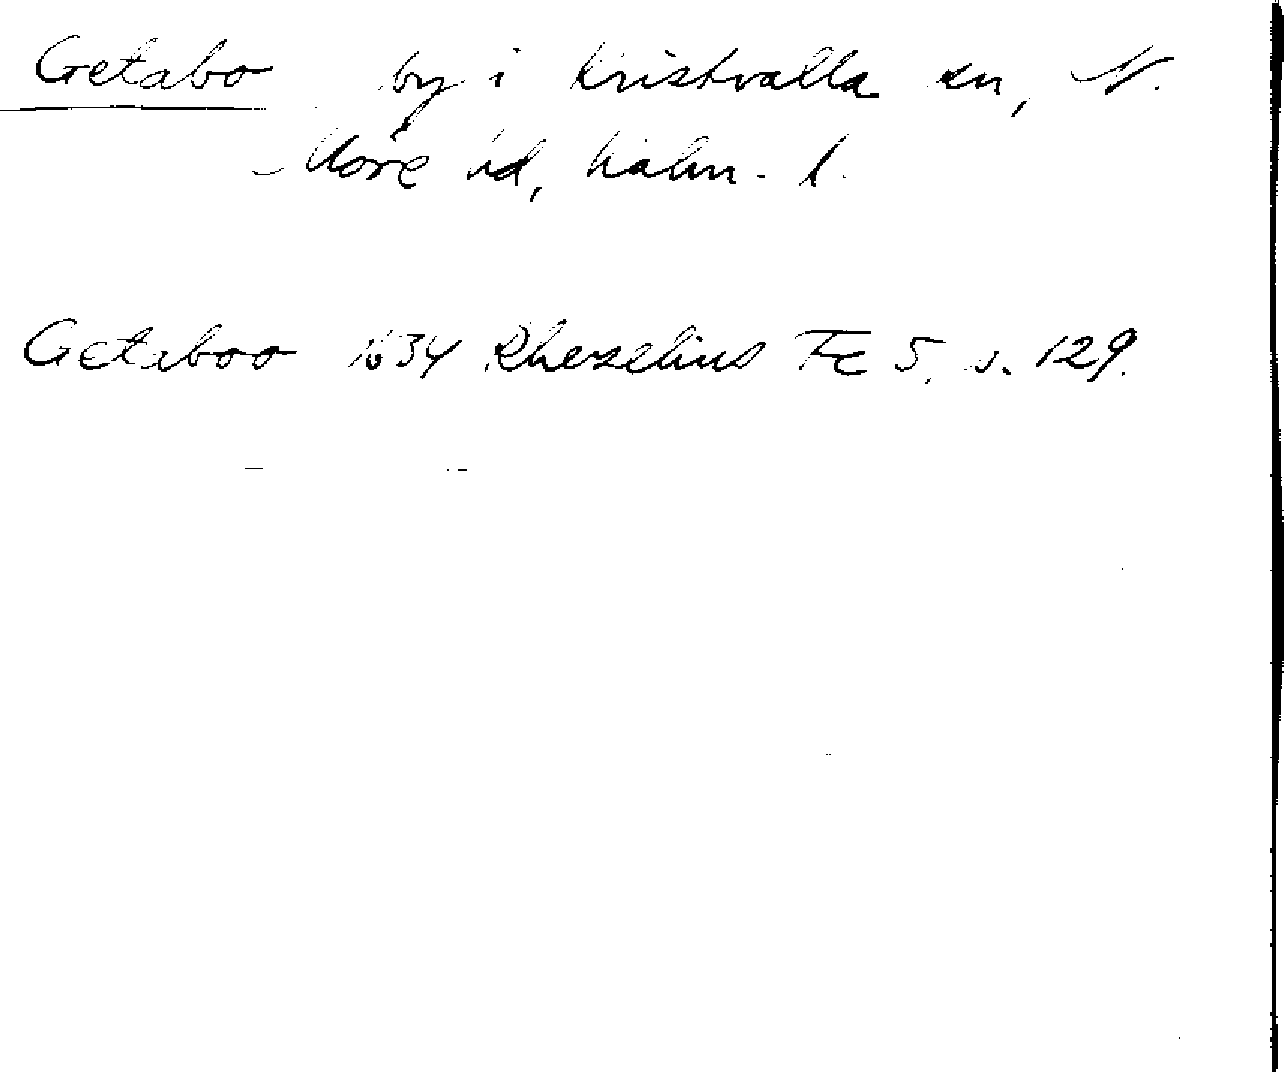 Getabo by i Kristvalla sn, N.
Möre hd, Kalm. l.
Getaboo 1634 Rhezelius Fc 5, s. 129.